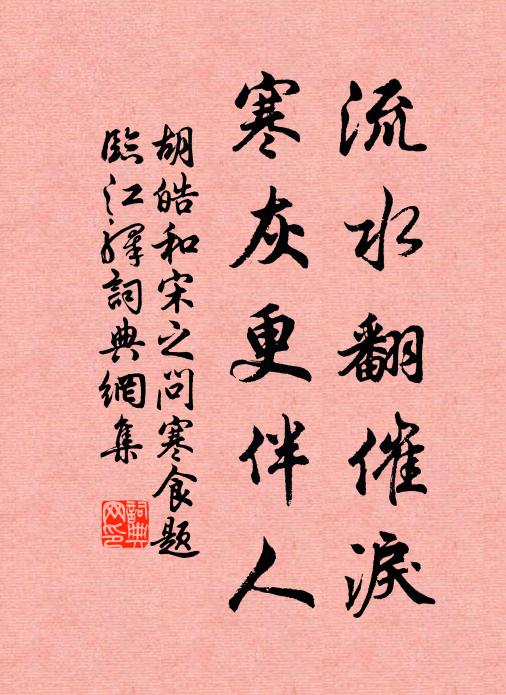 流水翻催淚
寒灰更伴人
胡皓和宋之問寒食題
臨江驛詞典網集
詞典網印